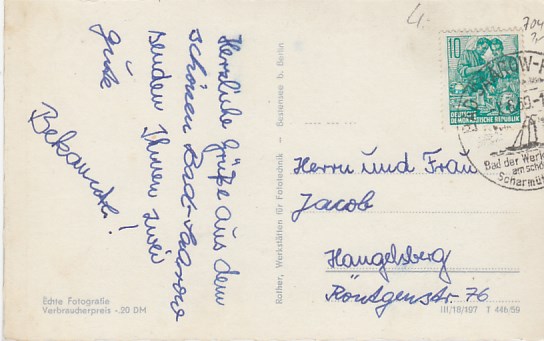 Herzliche Grüße aus dem
schönen Bad-Saarow
senden Ihnen zwei
gute
Bekannte!
Echte Fotografie
Verbraucherpreis -.20 DM
Rather, Werkstätten für Fototechnik – Bestensee b. Berlin
4.
704
10
DEUTSCHE
DEMOKRATISCHE REPUBLIK
SAAROW-P
59-1
Bad der Werk
am schö
Scharmüt
Herrn und Frau
Jacob
Hangelsberg
Röntgenstr. 76
III/18/197 T 446/59